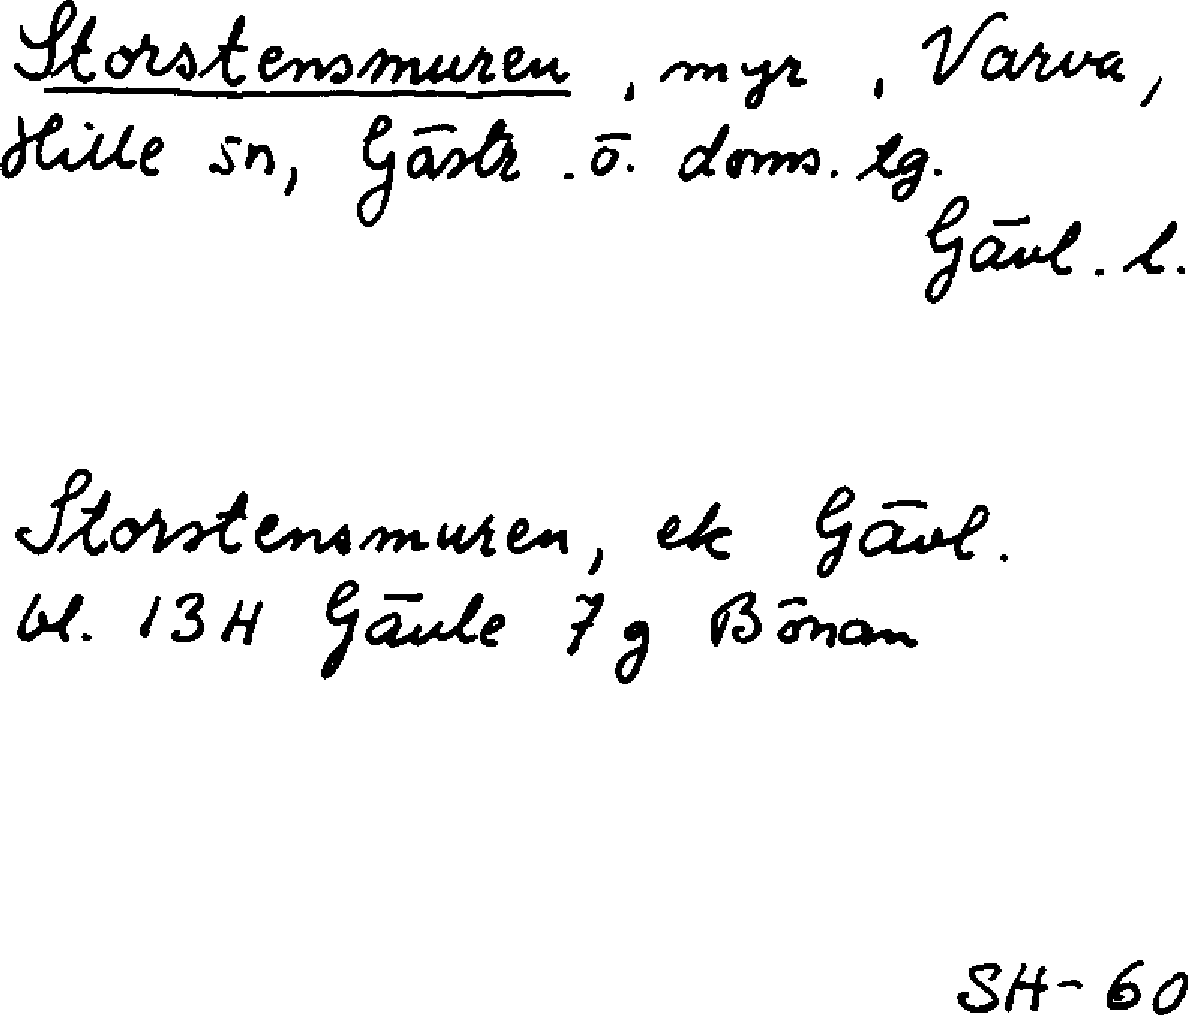 Storstensmuren, myr, Varva,
Hille sn, Gästr. ö. doms. tg.
Gävl. l.
Storstensmuren, ek Gävl.
bl. 13H Gävle 7g Bönan
SH-60